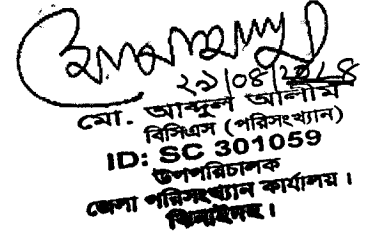 ২৯/০৪/২০২৪
মো. আব্দুল আলীম
বিসিএস (পরিসংখ্যান)
ID: SC 301059
উপপরিচালক
জেলা পরিসংখ্যান কার্যালয়।
ঝিনাইদহ।